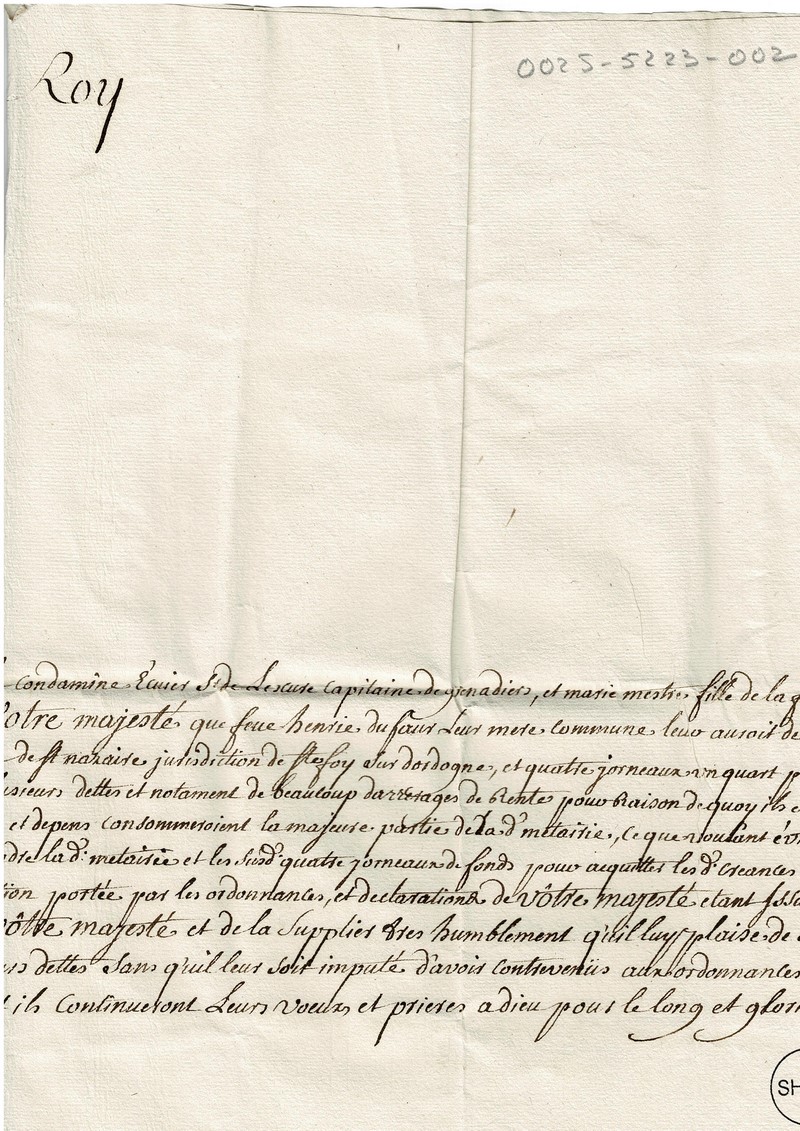 Roy
0025-5223-002
condamine Ecuier Sr de Lescure Capitaine de grenadiers, et marie mestre fille de la
Votre majesté que feue henrie du faur Leur mere commune leur auroit de
de st nazaire jurisdiction de ste foy sur dordogne, et quatre jorneaux un quart
lusieurs dettes et notament de beaucoup d'arrerages de Rente pour Raison de quoy ils
et depens consommeroient la majeure partie de la d. metairie, ce que voulant
dre la d. metairée et les susd. quatre jorneaux de fonds pour acquitter les d. creances
ion portée par les ordonnances, et declarations de Vôtre majesté etant Issu
Vôtre majesté et de la Supplier tres humblement qu'il luy plaise de
urs dettes sans qu'il leur soit imputé d'avoir contrevenüs aux ordonnances
ils Continueront Leurs voeux et prieres a dieu pour le long et glori
SH